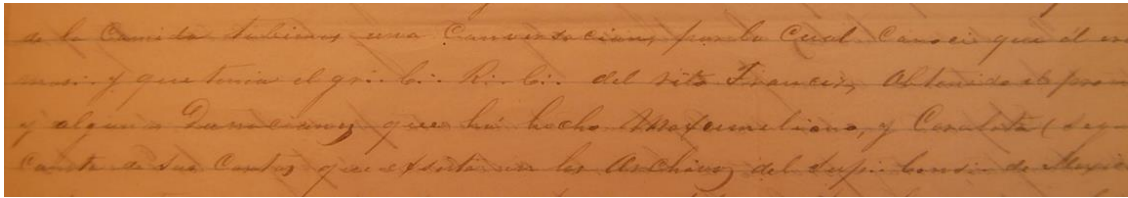 de la Comida tubimos una Conversacion, por la Cual Conoci que él er
mas∴ y que tenia el gr∴ del rito Frances, Obtenido el prom
y algunas Donaciones que há hecho Maxcimiliano, y Carolota (segu
Consta de sus Cartas que existen en los Archivos del Sup∴ Consi∴ de Mexico